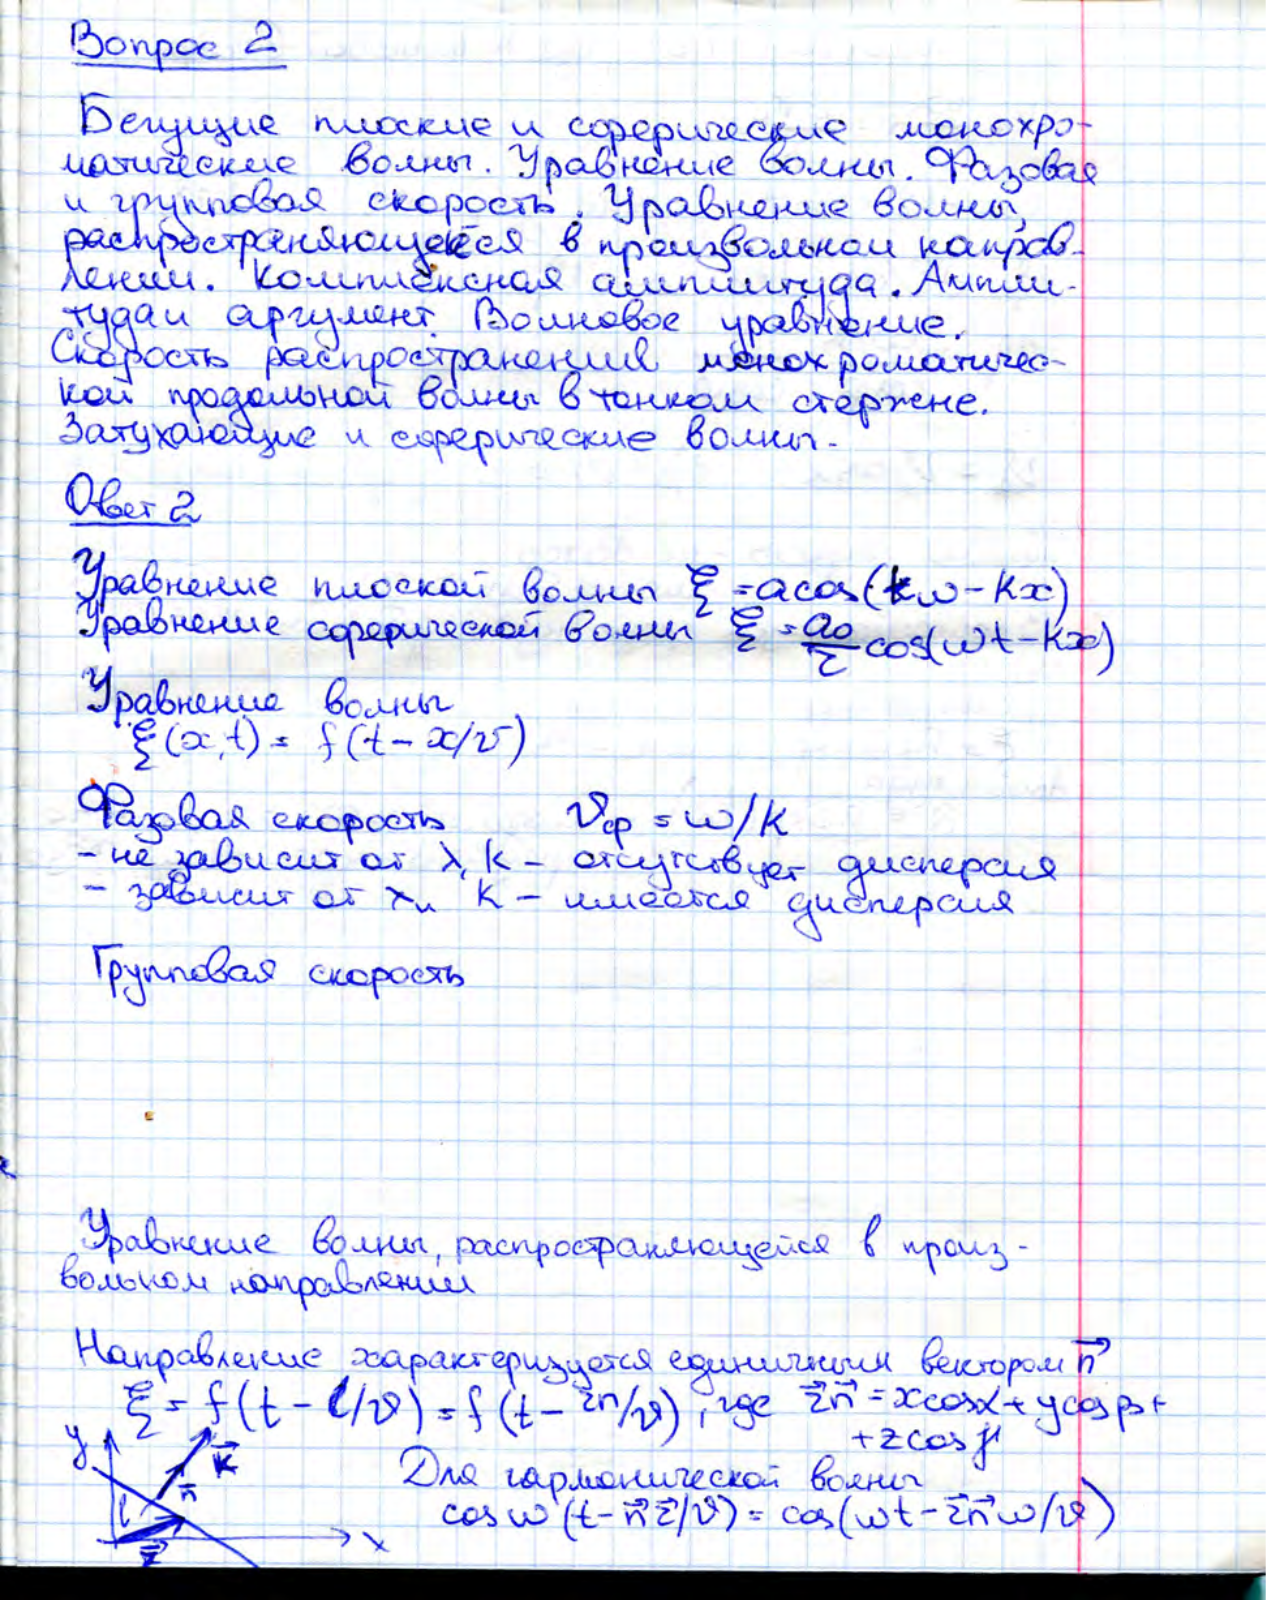 Вопрос 2
Бегущие плоские и сферические монохро-
матические волны. Уравнение волны. Фазовая
и групповая скорость. Уравнение волны,
распространяющейся в произвольном направ-
лении. Комплексная амплитуда. Ампли-
туда и аргумент. Волновое уравнение.
Скорость распространения монохроматичес-
кой продольной волны в тонком стержне.
Затухающие и сферические волны.
Ответ 2
Уравнение плоской волны ξ = a cos(tω - kx)
Уравнение сферической волны ξ = a₀/r cos(ωt - kx)
Уравнение волны
ξ(x,t) = f(t - x/v)
Фазовая скорость vф = ω/k
- не зависит от λ, k - отсутствует дисперсия
- зависит от λ и k - имеется дисперсия
Групповая скорость
Уравнение волны, распространяющейся в произ-
вольном направлении
Направление характеризуется единичным вектором n⃗
ξ = f(t - l/v) = f(t - r⃗n⃗/v), где r⃗n⃗ = x cosα + y cosβ +
+ z cosγ
y k⃗ n⃗ l r⃗ x
Для гармонической волны
cos ω(t - n⃗r⃗/v) = cos(ωt - r⃗n⃗ω/v)